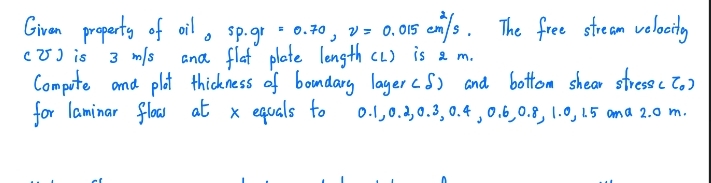 Given property of oil, sp.gr = 0.70, ν = 0.015 cm²/s. The free stream velocity
(U) is 3 m/s and flat plate length (L) is 2 m.
Compute and plot thickness of boundary layer (δ) and bottom shear stress (τ₀)
for laminar flow at x equals to 0.1, 0.2, 0.3, 0.4, 0.6, 0.8, 1.0, 1.5 and 2.0 m.